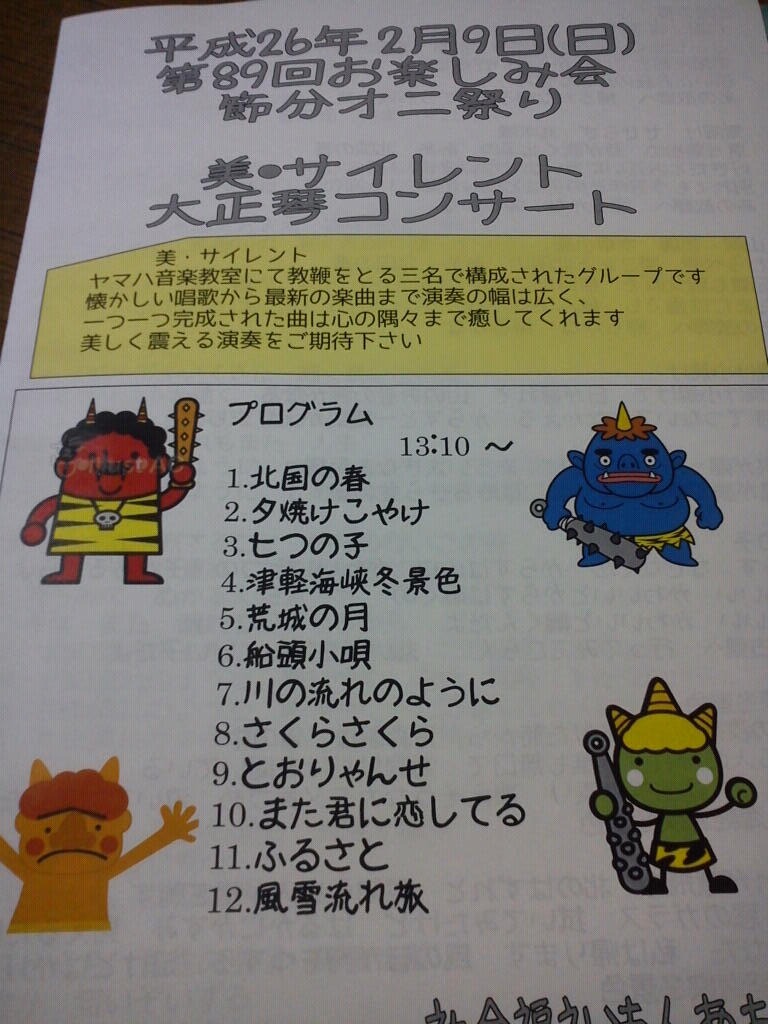 平成26年2月9日(日)
第89回お楽しみ会
節分オニ祭り
美・サイレント
大正琴コンサート
美・サイレント
ヤマハ音楽教室にて教鞭をとる三名で構成されたグループです
懐かしい唱歌から最新の楽曲まで演奏の幅は広く、
一つ一つ完成された曲は心の隅々まで癒してくれます
美しく震える演奏をご期待下さい
プログラム
13:10 ～
1.北国の春
2.夕焼けこやけ
3.七つの子
4.津軽海峡冬景色
5.荒城の月
6.船頭小唄
7.川の流れのように
8.さくらさくら
9.とおりゃんせ
10.また君に恋してる
11.ふるさと
12.風雪流れ旅